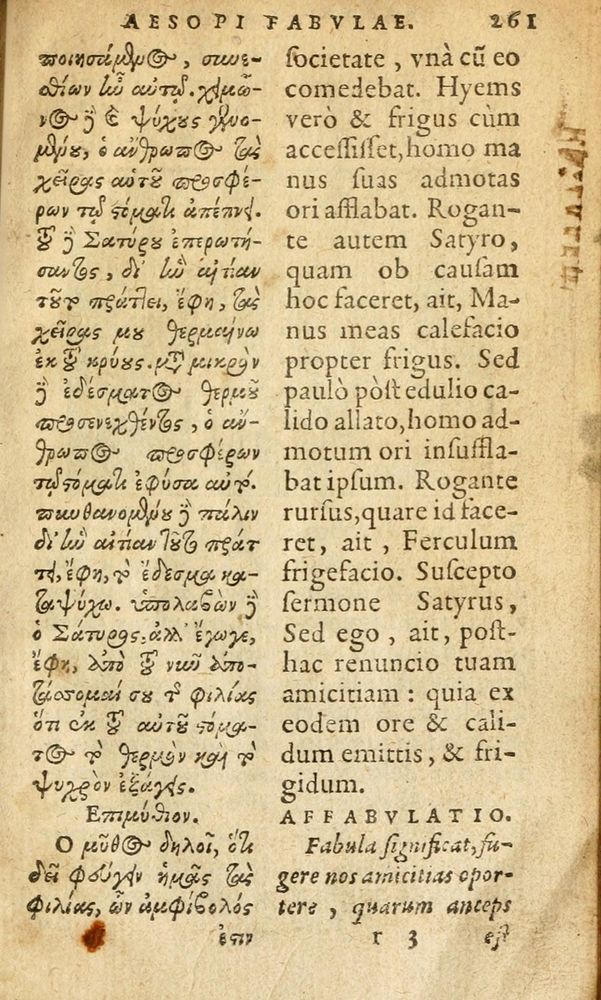 AESOPI FABVLAE. 261
ποιησάμενος, συνε-
σθίων ἦν αὐτῷ. χειμῶ-
νος δὲ καὶ ψύχους γενο-
μένου, ὁ ἄνθρωπος τὰς
χεῖρας αὑτοῦ προσφέ-
ρων τῷ στόματι ἀπέπνει.
τοῦ δὲ Σατύρου ἐπερωτή-
σαντος, δι' ἣν αἰτίαν
τοῦτο πράττει, ἔφη, τὰς
χεῖράς μου θερμαίνω
ἐκ τοῦ κρύους. μετὰ μικρὸν
δὲ ἐδέσματος θερμοῦ
προσενεχθέντος, ὁ ἄν-
θρωπος προσφέρων
τῷ στόματι ἐφύσα αὐτό.
πυνθανομένου δὲ πάλιν
δι' ἣν αἰτίαν τοῦτο πράτ
τει, ἔφη, τὸ ἔδεσμα κα-
ταψύχω. ὑπολαβὼν δὲ
ὁ Σάτυρος, ἀλλ' ἔγωγε,
ἔφη, ἀπὸ τοῦ νῦν ἀπο-
τάσσομαί σου τῆς φιλίας
ὅτι ἐκ τοῦ αὐτοῦ στόμα-
τος τὸ θερμὸν καὶ τὸ
ψυχρὸν ἐξάγεις.
Επιμύθιον.
Ο μῦθος δηλοῖ, ὅτι
δεῖ φεύγειν ἡμᾶς τὰς
φιλίας, ὧν ἀμφίβολός
ἐπιν
ſocietate , vnà cũ eo
comedebat. Hyems
verò & frigus cùm
acceſſiſſet, homo ma
nus ſuas admotas
ori afflabat. Rogan-
te autem Satyro,
quam ob cauſam
hoc faceret, ait, Ma-
nus meas calefacio
propter frigus. Sed
paulò pòſt edulio ca-
lido allato, homo ad-
motum ori inſuffla-
bat ipſum. Rogante
rurſus, quare id face-
ret, ait , Ferculum
frigefacio. Suſcepto
ſermone Satyrus,
Sed ego , ait, poſt-
hac renuncio tuam
amicitiam : quia ex
eodem ore & cali-
dum emittis, & fri-
gidum.
AFFABVLATIO.
Fabula ſignificat, fu-
gere nos amicitias opor-
tere , quarum anceps
r 3 eſt